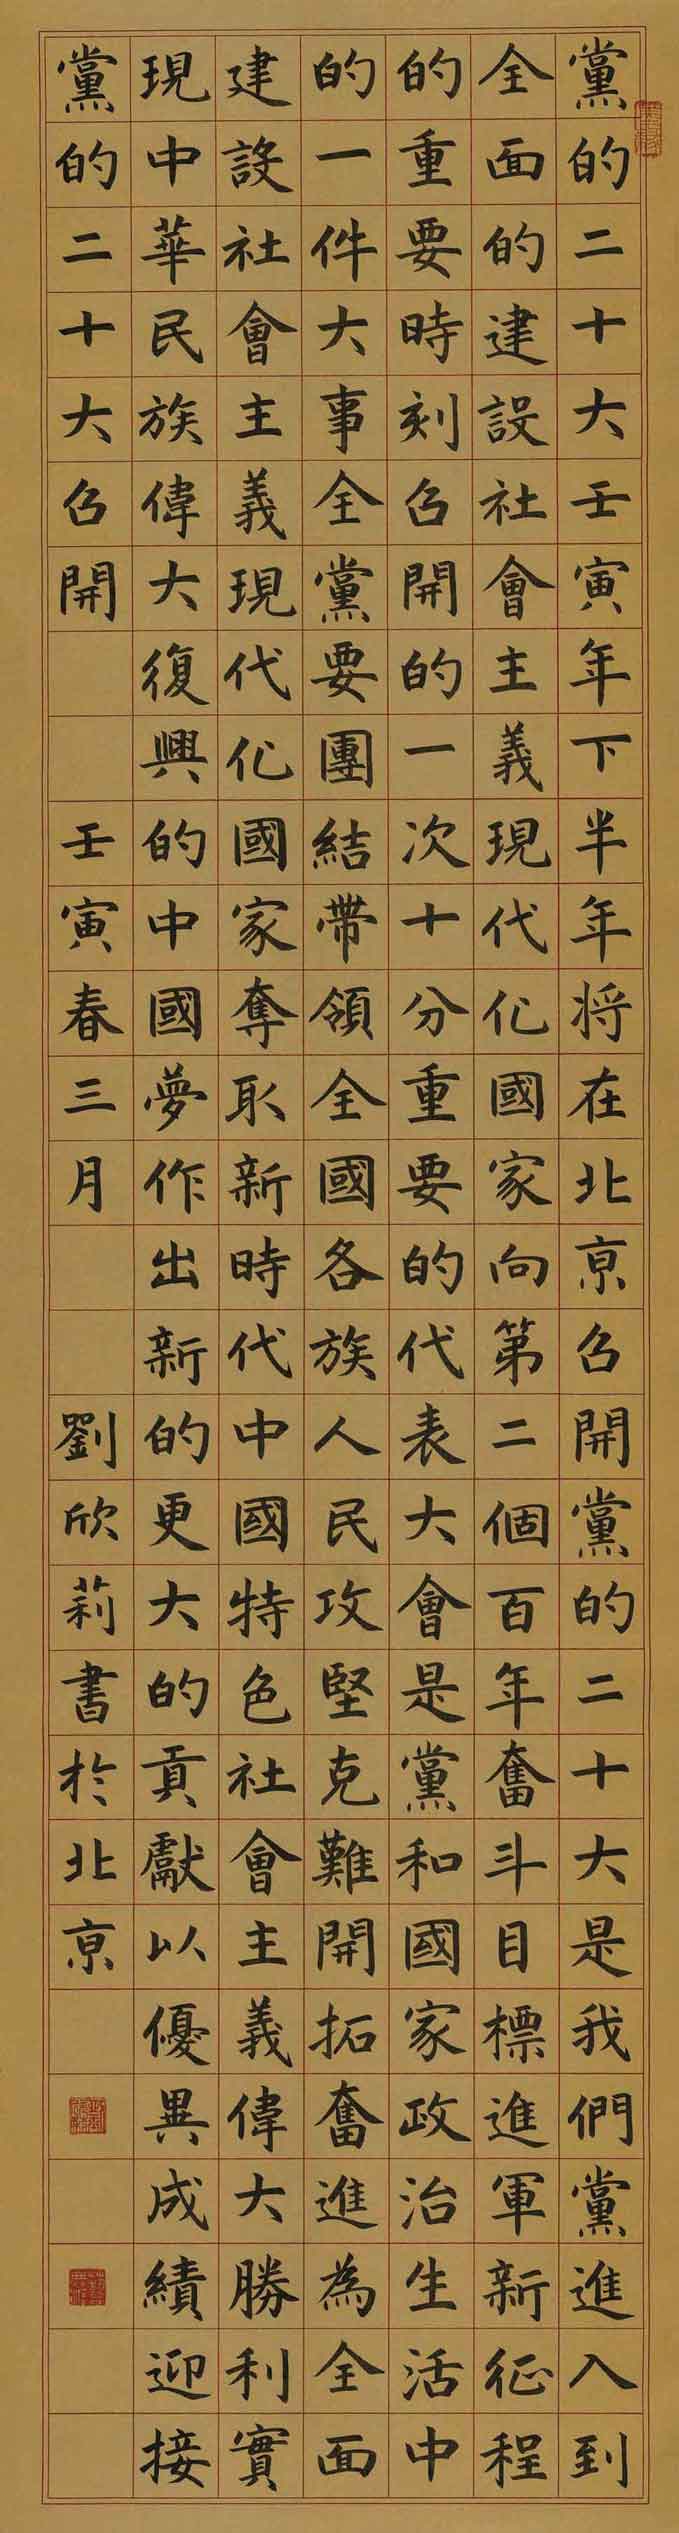 黨的二十大壬寅年下半年将在北京召開黨的二十大是我們黨進入到
全面的建設社會主義現代化國家向第二個百年奮斗目標進軍新征程
的重要時刻召開的一次十分重要的代表大會是黨和國家政治生活中
的一件大事全黨要團結帶領全國各族人民攻堅克難開拓奮進為全面
建設社會主義現代化國家奪取新時代中國特色社會主義偉大勝利實
現中華民族偉大復興的中國夢作出新的更大的貢獻以優異成績迎接
黨的二十大召開 壬寅春三月 劉欣莉書於北京